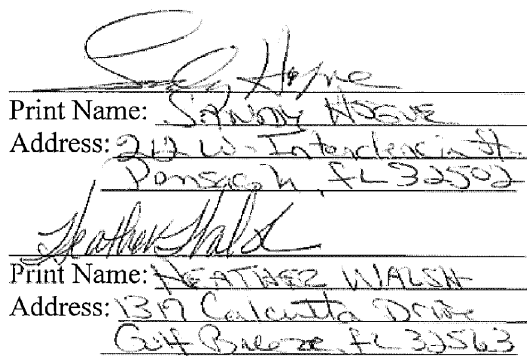 Print Name: SANDY HOGUE
Address: 212 W. Intendencia St.
Pensacola, FL 32502
Heather Walsh
Print Name: HEATHER WALSH
Address: Calcutta Drive
Gulf Breeze, FL 32563